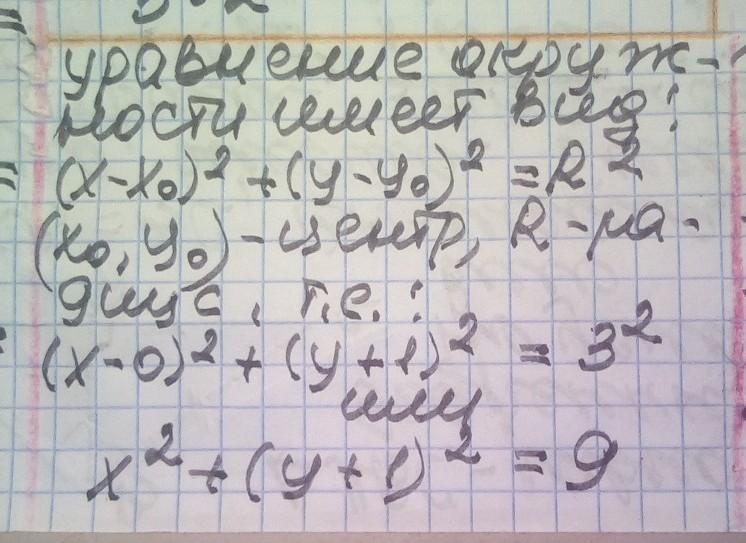 уравнение окруж-
ности имеет вид:
(x-x₀)² + (y-y₀)² = R²
(x₀, y₀) - центр, R - ра-
диус, т.е.:
(x-0)² + (y+1)² = 3²
или
x² + (y+1)² = 9